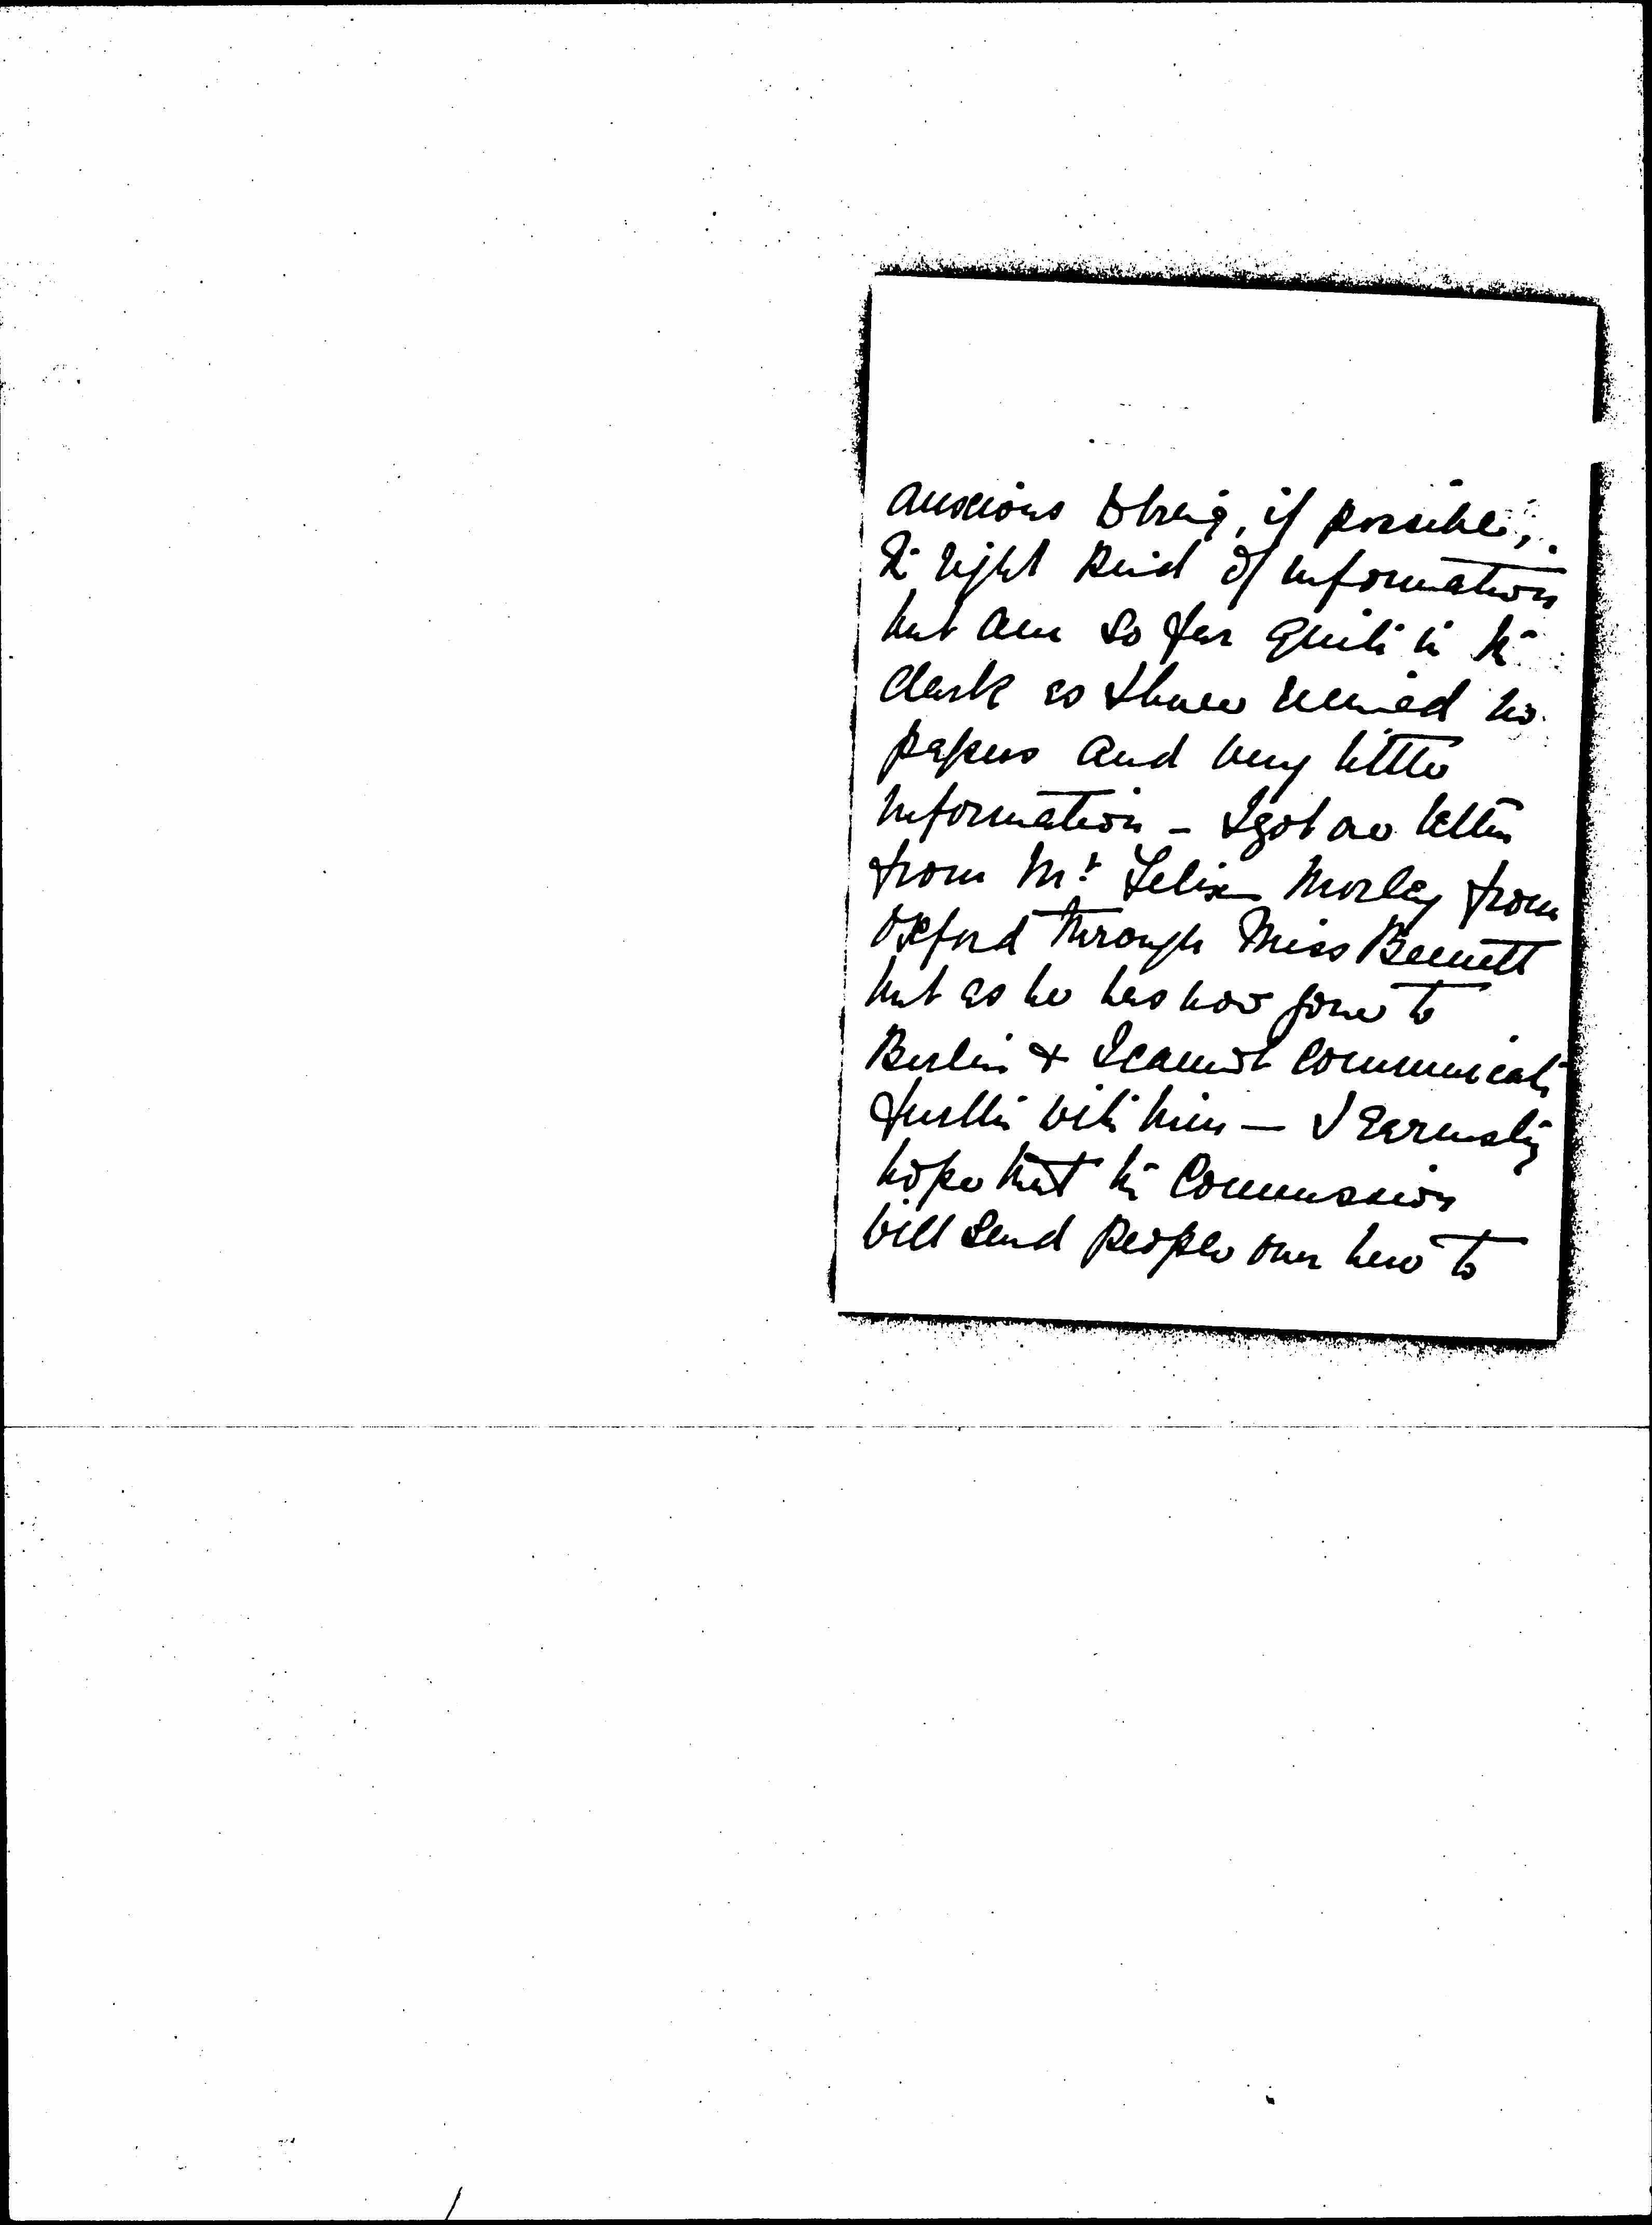 anxious to bring, if possible,
the right kind of information
but am so far quite in the
dark as I have received no
papers and very little
information - I got one letter
from Mr Felix Morley from
Oxford through Miss Bennett
but as he has now gone to
Berlin & I cannot communicate
further with him — I earnestly
hope that the Commission
will send people over here to